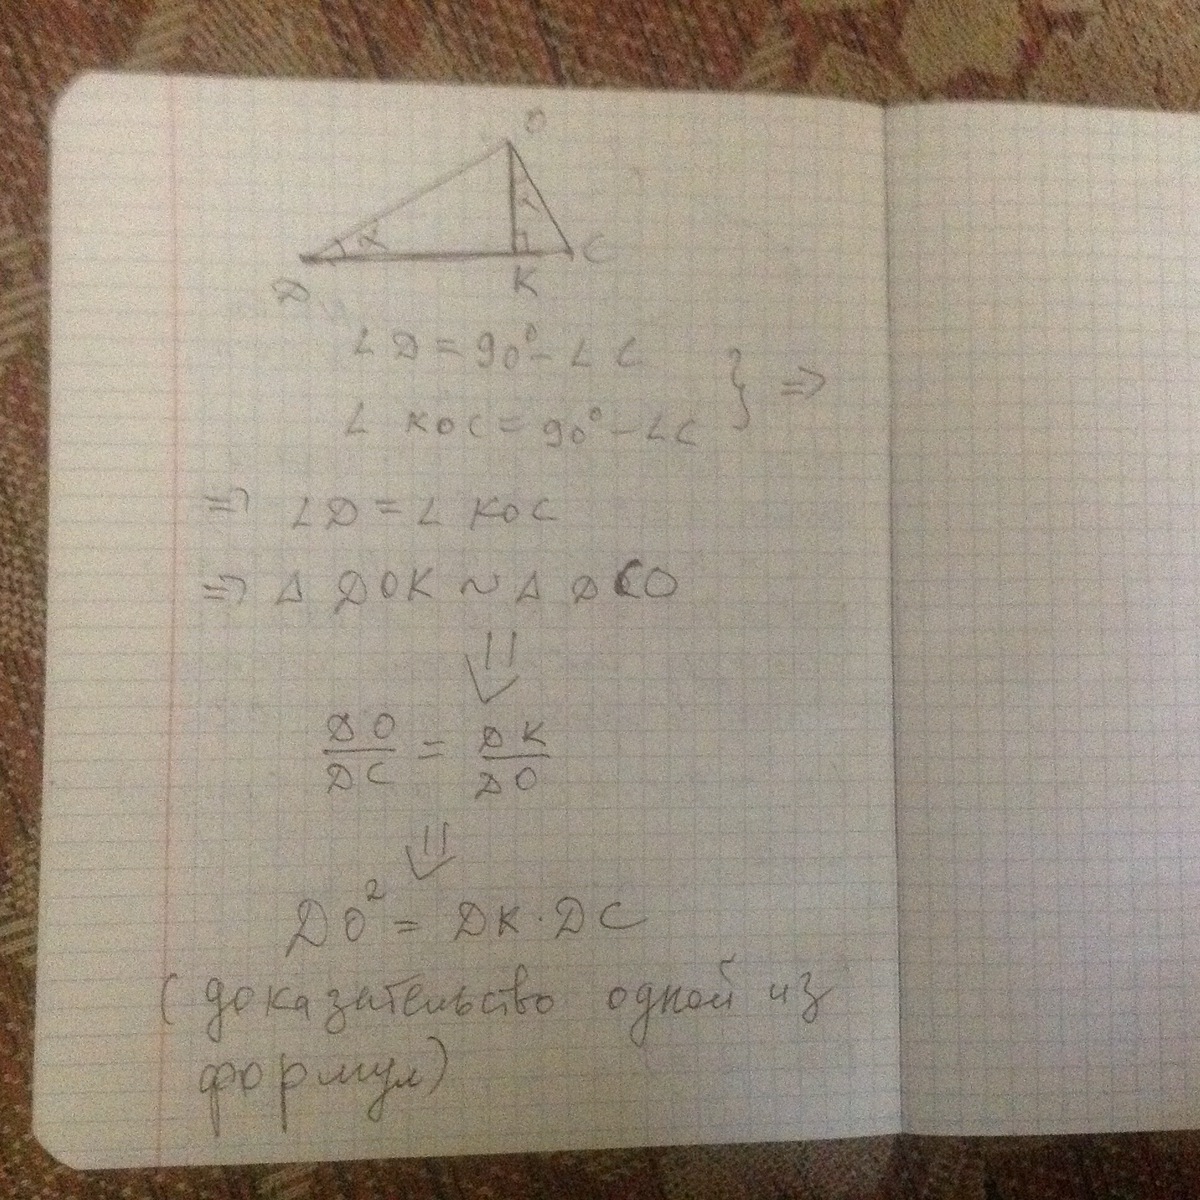 O
α
α
D
K
C
∠ D = 90° - ∠ C
∠ KOC = 90° - ∠C } ⇒
⇒ ∠D = ∠ KOC
⇒ Δ DOK ~ Δ DCO
⇓
DO/DC = DK/DO
⇓
DO² = DK · DC
(доказательство одной из
формул)